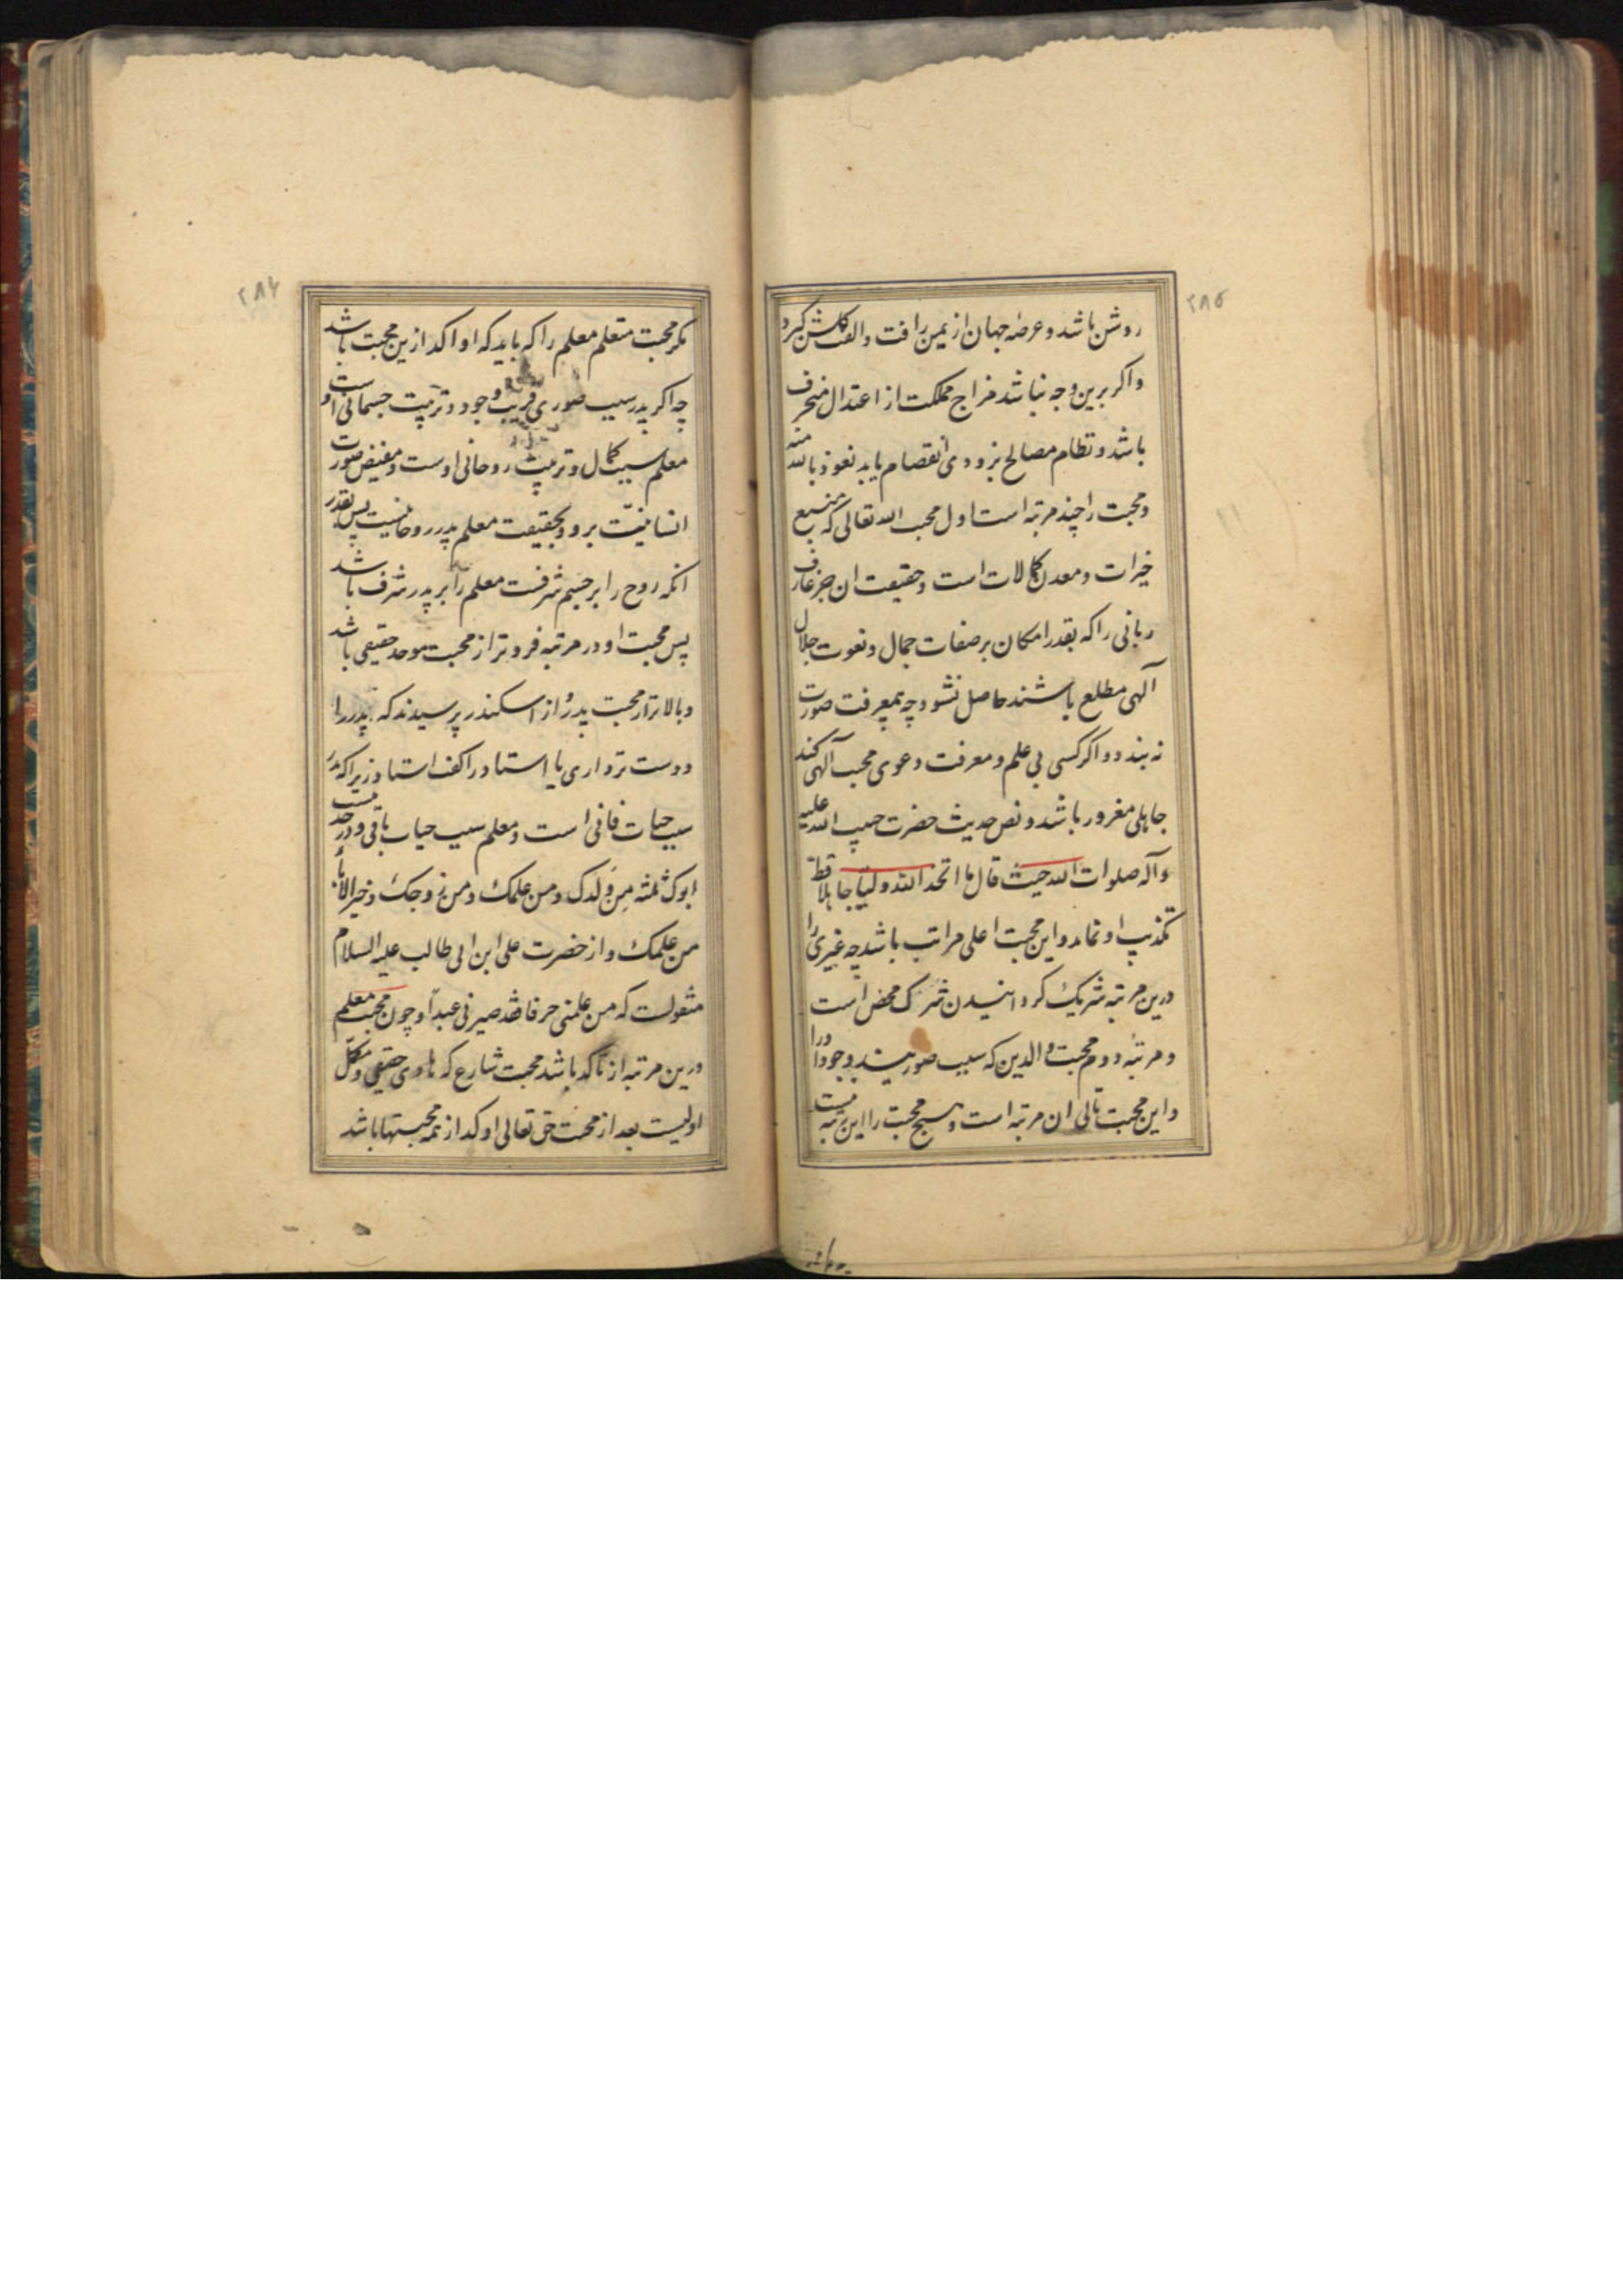 ٢٨٥
روشن باشد و عرصهٔ جهان از یمن رافت و الفت کلشن کردد
و اکر برین وجه نباشد مزاج مملکت از اعتدال منحرف
باشد و نظام مصالح بزودی انفصام یابد نعوذ بالله منه
و محبت را چند مرتبه است اول محبت الله تعالی که منبع
خیرات و معدن کمالات است و حقیقت ان جز عارف
ربانی را که بقدر امکان بر صفات جمال و نعوت جلال
آلهی مطلع باشند حاصل نشود چه بمعرفت صورت
نه بندد و اکر کسی بی علم و معرفت دعوی محبت آلهی کند
جاهلی مغرور باشد و نص حدیث حضرت حبیب الله علیه
و آله صلوات الله حیث قال ما اتخذ الله ولیا جاهلا قط
تکذیب او نماید و این محبت اعلی مراتب باشد چه غیری را
درین مرتبه شریک کردانیدن شرک محض است
و مرتبهٔ دوم محبت والدین که سبب صوریند وجود او را
و این محبت تالی ان مرتبه است و هیچ محبت را این رتبه نیست
٢٨٦
مکر محبت متعلم معلم را که باید که او اکد ازین محبت باشد
چه اکر پدر سبب صوری قریب وجود و تربیت جسمانی اوست
معلم سبب کمال و تربیت روحانی اوست و مفیض صورت
انسانیّت برو و بحقیقت معلم پدر روحانیست پس بقدر
انکه روح را بر جسم شرفست معلم را بر پدر شرف باشد
پس محبت او در مرتبه فروتر از محبت موحد حقیقی باشد
و بالاتر از محبت پدر و از اسکندر پرسیدند که پدر را
دوست تر داری یا استاد را کفت استاد زیرا که پدر
سبب حیات فانی است و معلم سبب حیاب باقی و در حدیثست
ابوک ثلثه من ولدک و من علمک و من زوجک و خیر الاباء
من علمک و از حضرت علی ابن ابی طالب علیه السلام
منقولست که من علمنی حرفا فقد صیرنی عبدا و چون محبت معلم
درین مرتبه از تاکد باشد محبت شارع که هادی حقیقی و مکمّل
اولیست بعد از محبت حق تعالی اوکد از همه محبتها باشد